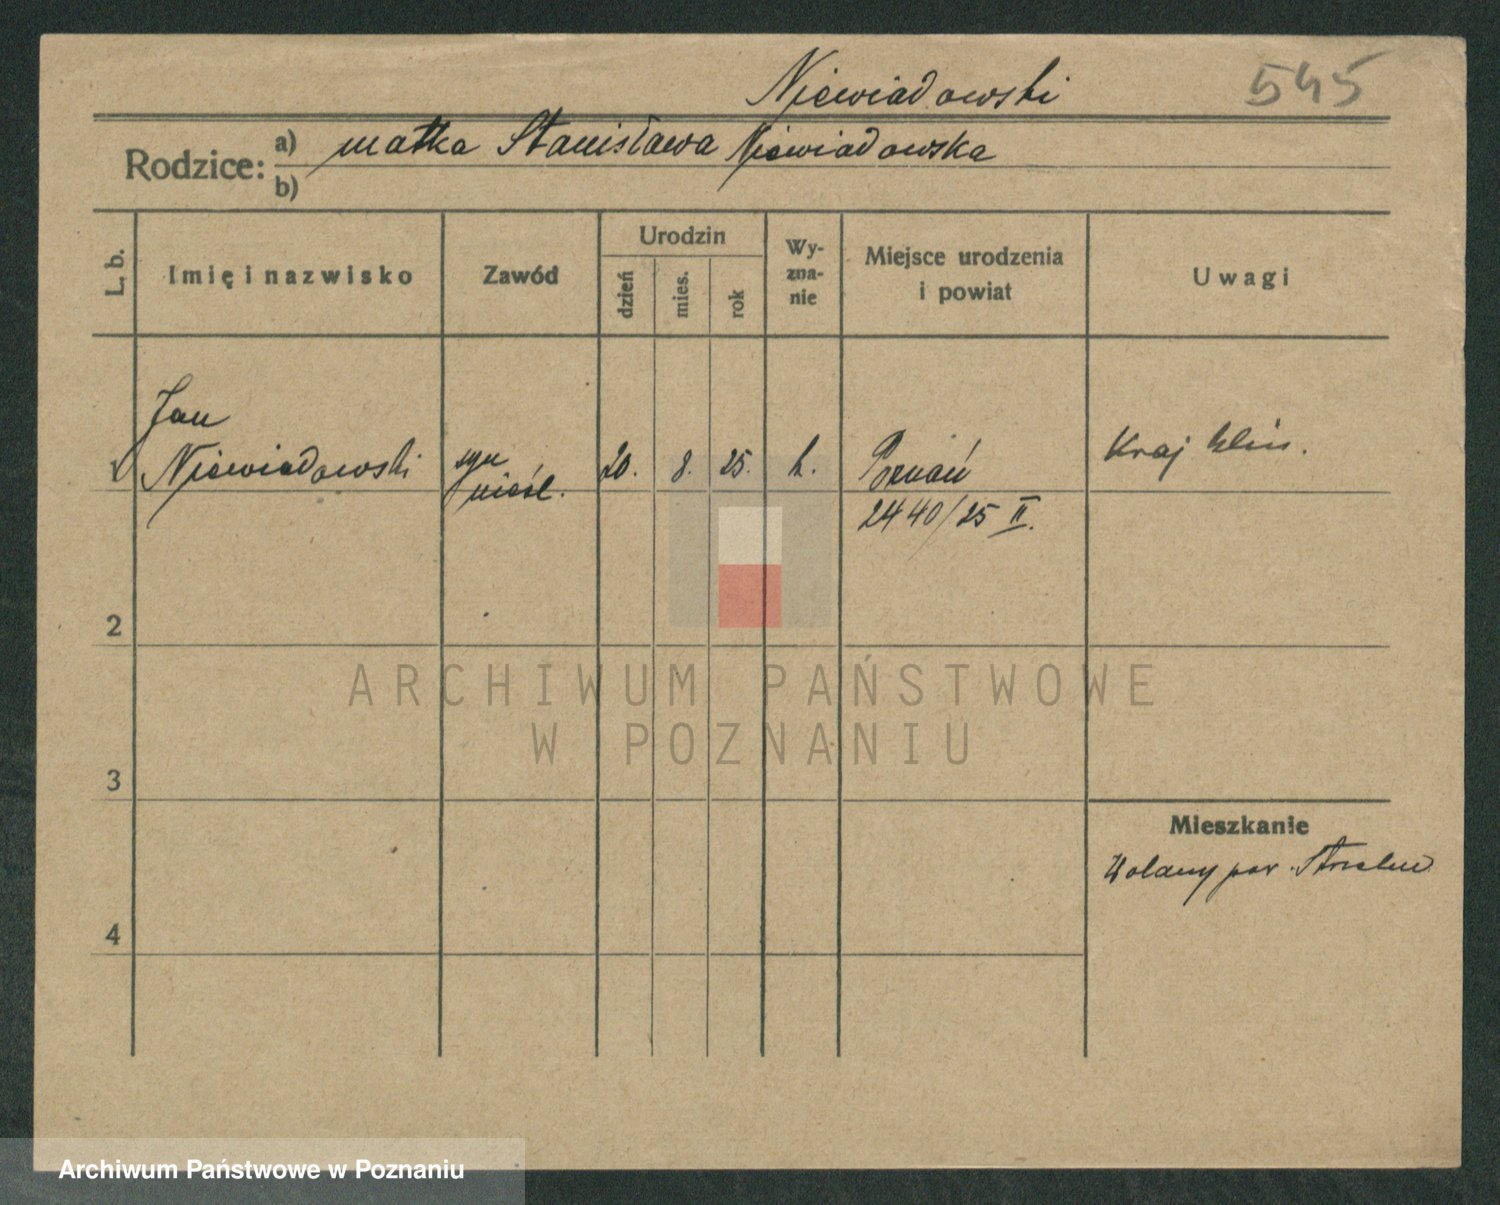 Niewiadowski 545
Rodzice: a) matka Stanisława Niewiadowska
b)
L. b.
Imię i nazwisko
Zawód
Urodzin
dzień
mies.
rok
Wy-
zna-
nie
Miejsce urodzenia
i powiat
Uwagi
1 Jan
Niewiadowski
syn
nieśl.
20. 8. 25. k.
Poznań
2440/25 II.
Kraj
2
3
4
Mieszkanie
Wolany pow.
ARCHIWUM PAŃSTWOWE
W POZNANIU
Archiwum Państwowe w Poznaniu